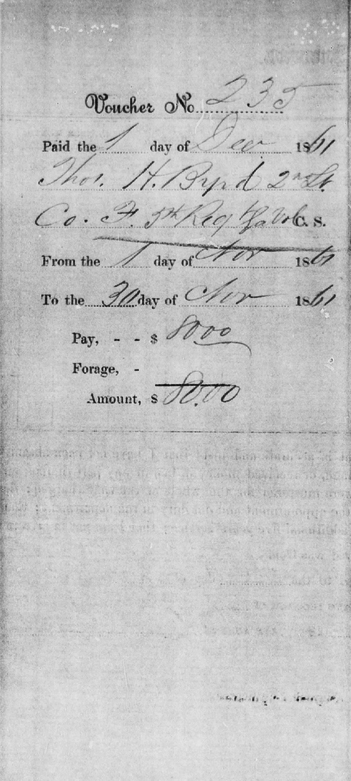 Voucher No 235
Paid the 1 day of Dec 1861
Thos. H. Byrd 2nd Lt.
Co. F. 5th Reg Vols C. S.
From the 1 day of Nov 1861
To the 30 day of Nov 1861
Pay, - - $ 8000
Forage, -
Amount, $ 80.00